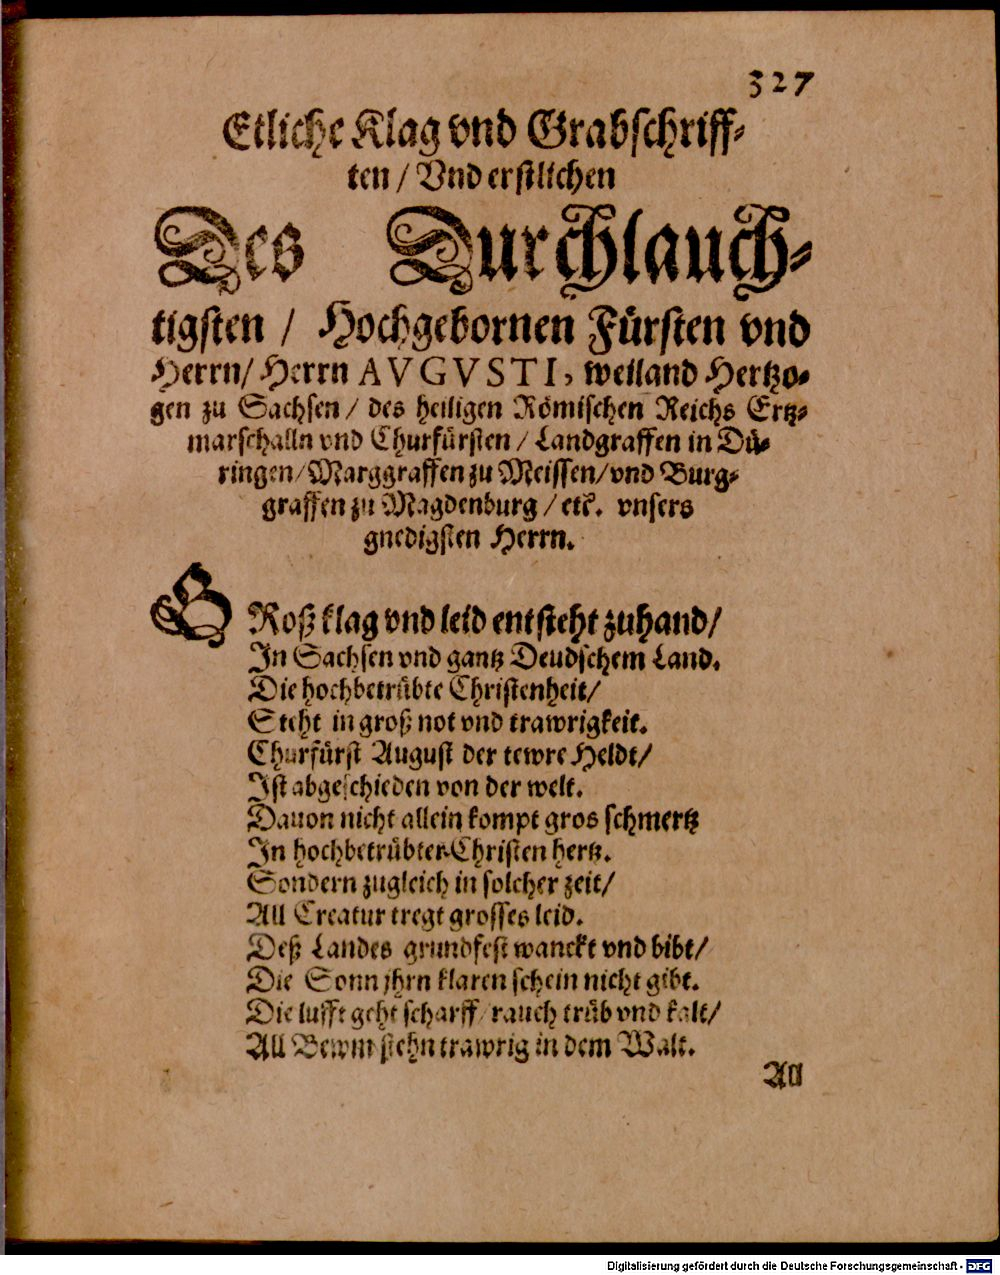 327
Etliche Klag vnd Grabschriff-
ten / Vnd erstlichen
Des Durchlauch-
tigsten / Hochgebornen Fürsten vnd
Herrn / Herrn AVGVSTI, weiland Hertzo-
gen zu Sachsen / des heiligen Römischen Reichs Ertz-
marschalln vnd Churfürsten / Landgraffen in Dü-
ringen / Marggraffen zu Meissen / vnd Burg-
graffen zu Magdenburg / etc. vnsers
gnedigsten Herrn.
GRoß klag vnd leid entsteht zuhand /
In Sachsen vnd gantz Deudschem Land.
Die hochbetrübte Christenheit /
Steht in groß not vnd trawrigkeit.
Churfürst August der tewre Heldt /
Ist abgeschieden von der welt.
Dauon nicht allein kompt gros schmertz
In hochbetrübter Christen hertz.
Sondern zugleich in solcher zeit /
All Creatur tregt grosses leid.
Deß Landes grundfest wanckt vnd bibt /
Die Sonn jhrn klaren schein nicht gibt.
Die lufft geht scharff / rauch trüb vnd kalt /
All Bewm stehn trawrig in dem Walt.
All
Digitalisierung gefördert durch die Deutsche Forschungsgemeinschaft - DFG